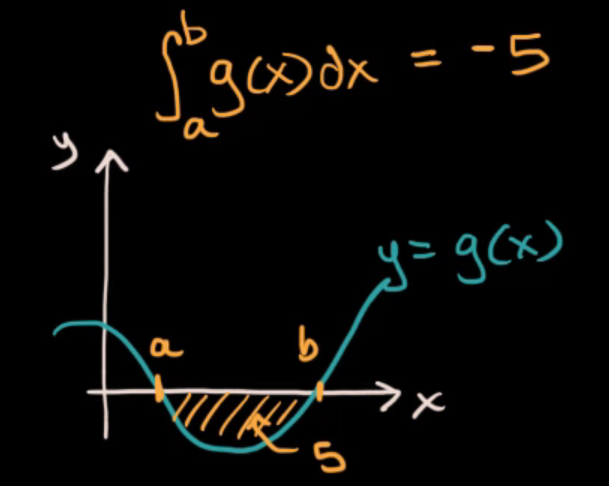 ∫_a^b g(x)dx = -5
y
y = g(x)
a b
x
5